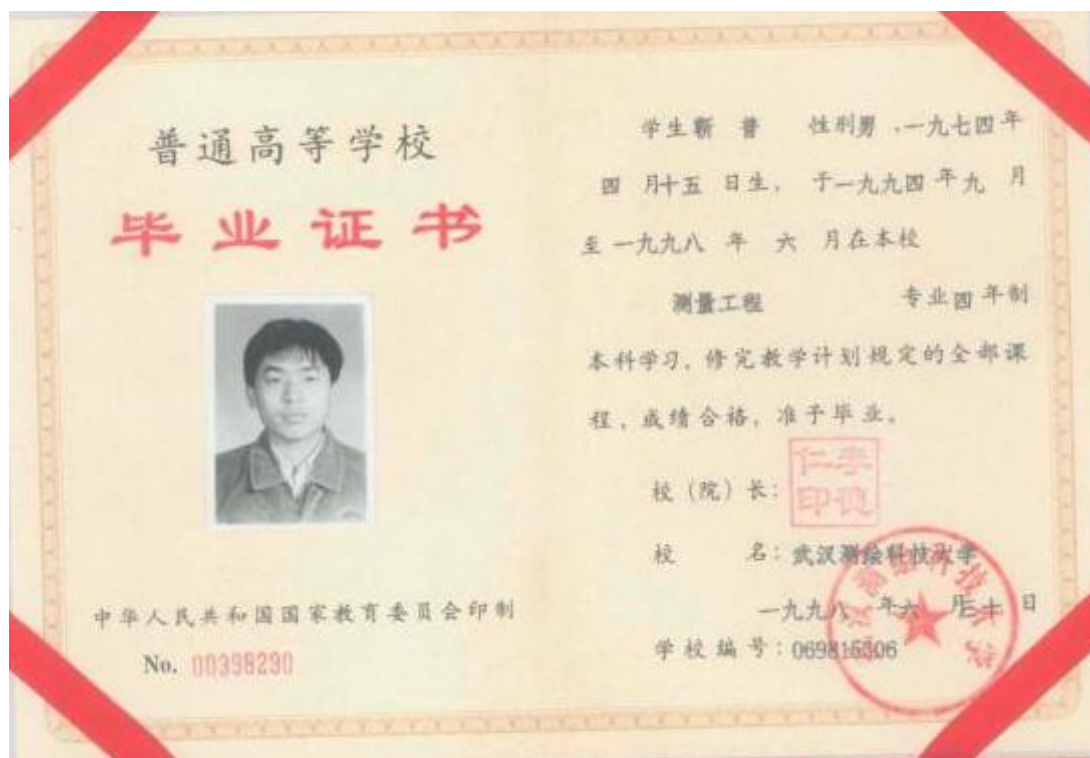 普通高等学校
毕业证书
中华人民共和国国家教育委员会印制
No. 00398290
学生靳 普 性别男 ,一九七四年
四 月十五 日生, 于一九九四年九 月
至一九九八 年 六 月在本校
测量工程 专业四年制
本科学习, 修完教学计划规定的全部课
程, 成绩合格, 准予毕业。
校(院)长:
校 名: 武汉测绘科技大学
一九九八 年六 月三十 日
学校编号: 069815306